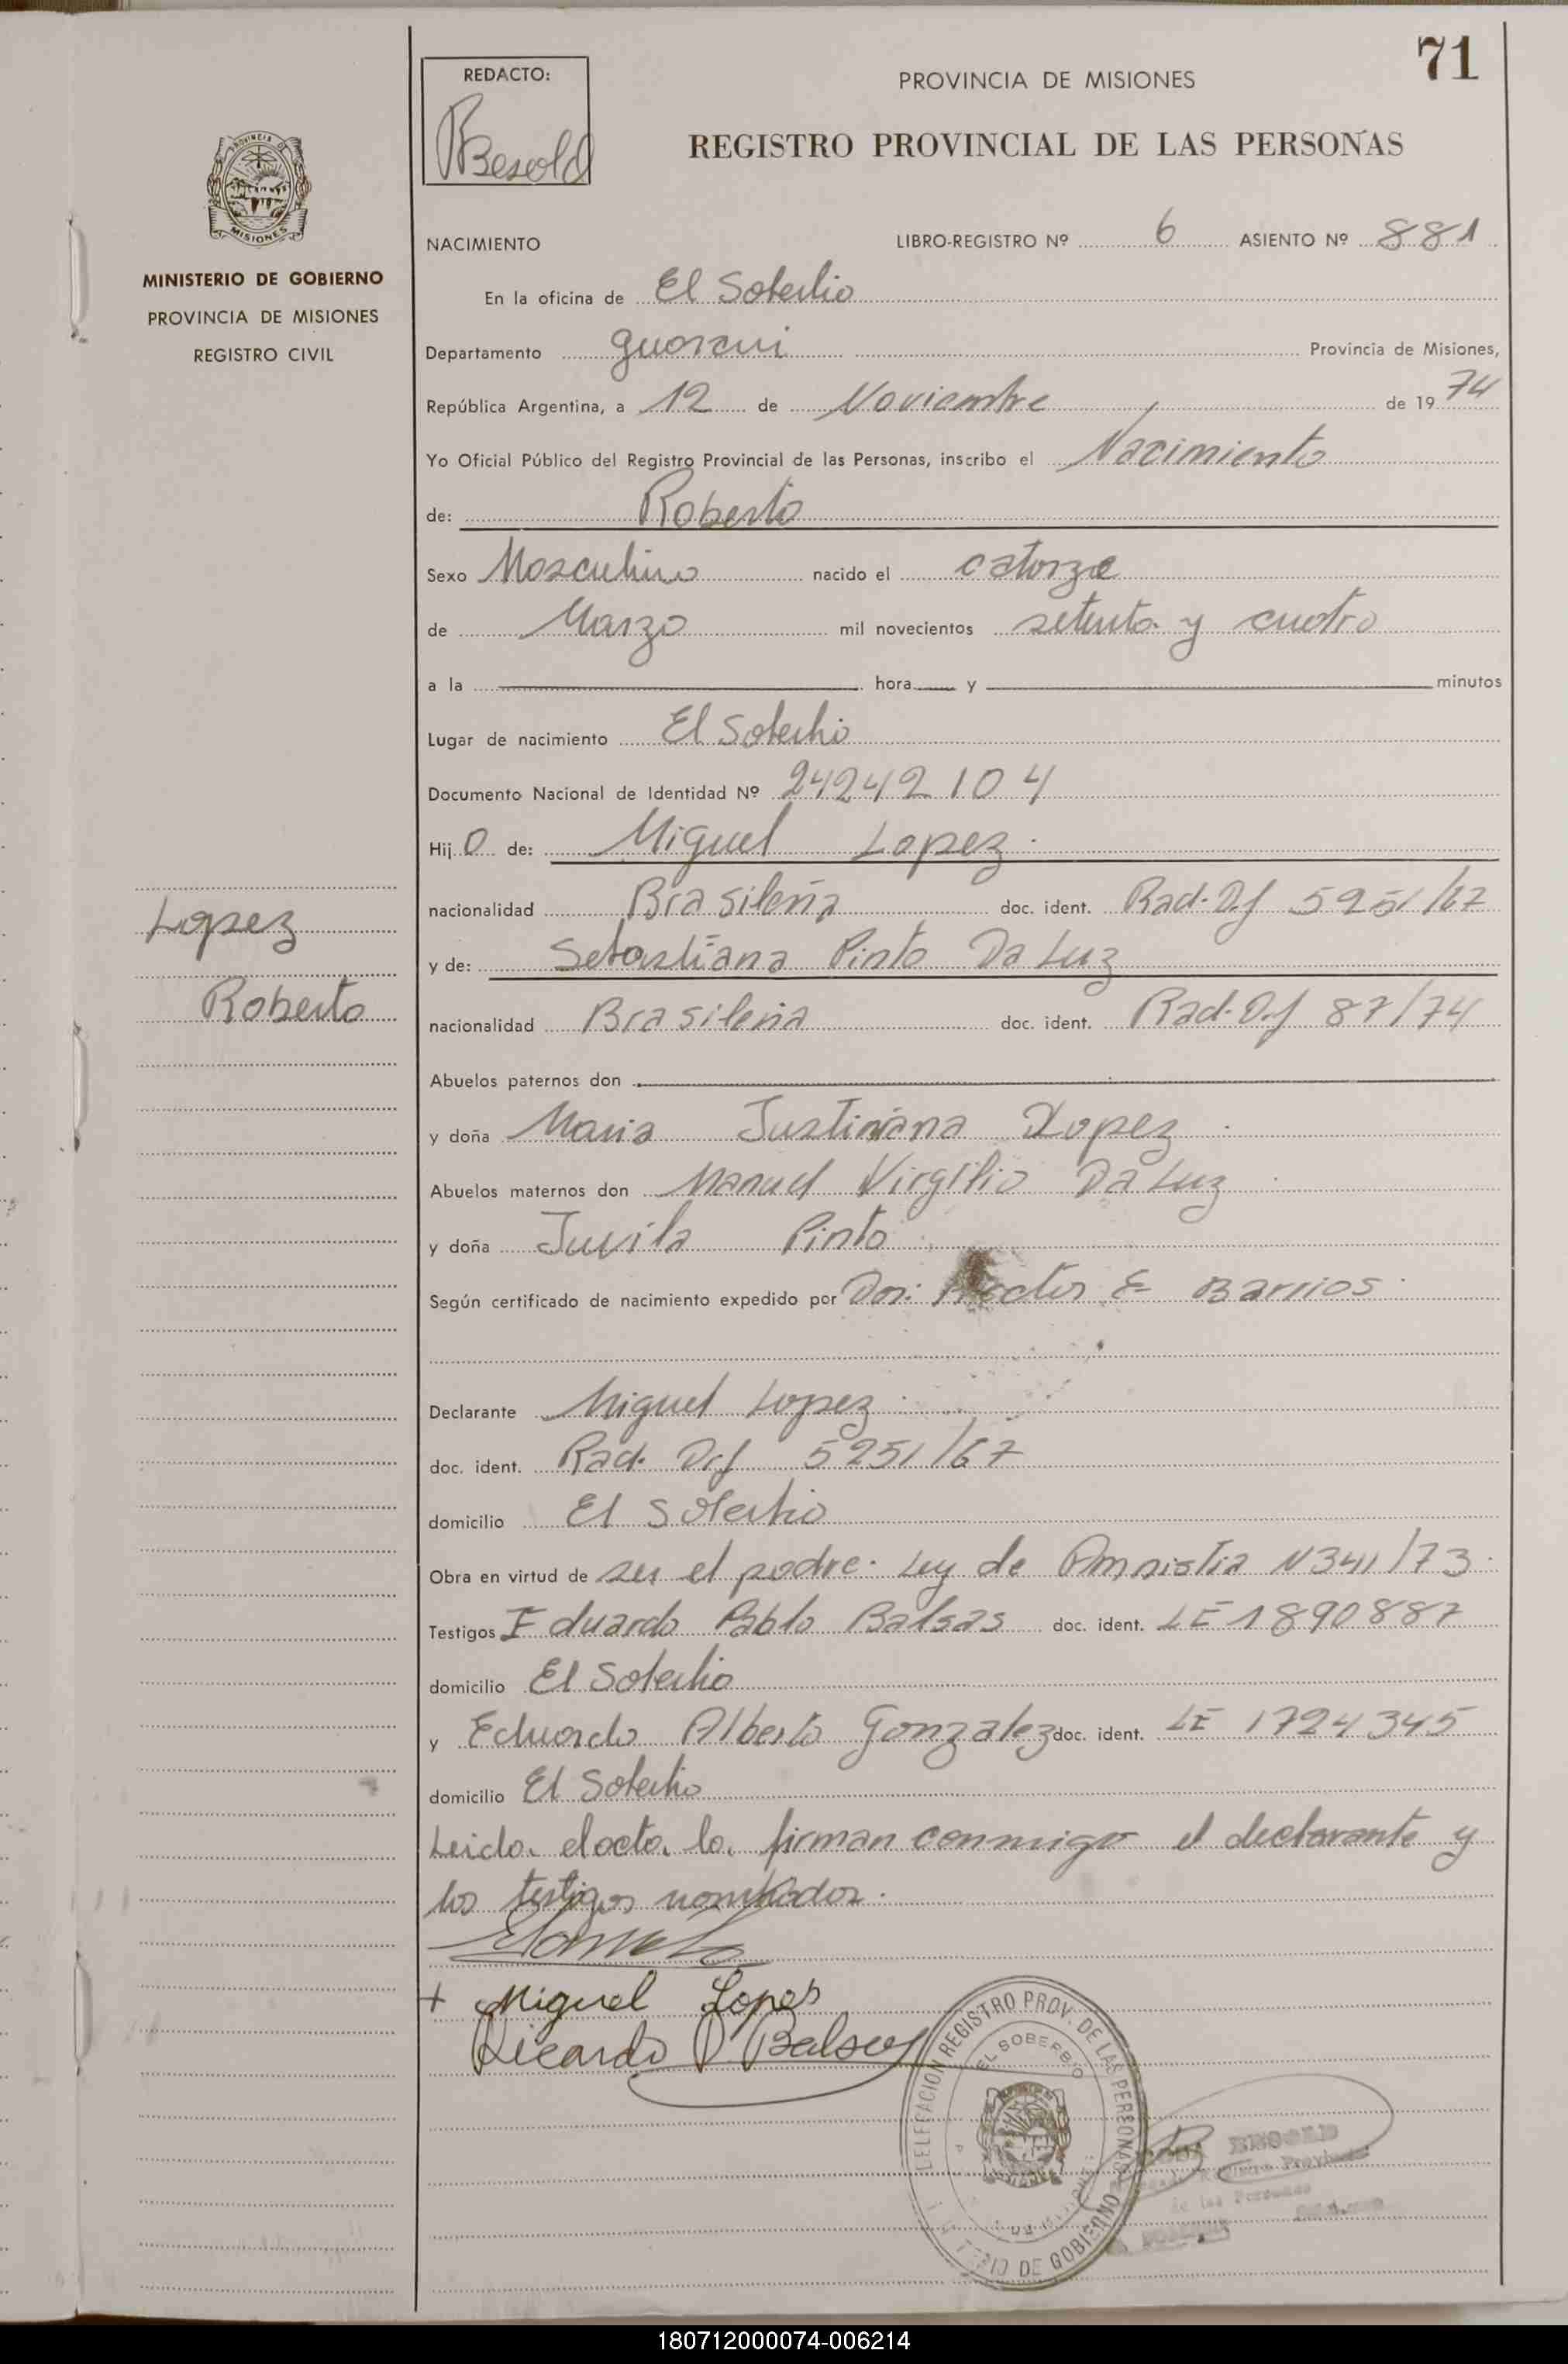 71
REDACTO:
Besold
PROVINCIA DE MISIONES
REGISTRO PROVINCIAL DE LAS PERSONAS
MISIONES
MINISTERIO DE GOBIERNO
PROVINCIA DE MISIONES
REGISTRO CIVIL
NACIMIENTO
LIBRO-REGISTRO Nº 6 ASIENTO Nº 881
En la oficina de El Soberbio
Departamento Guarani Provincia de Misiones,
República Argentina, a 12 de Noviembre de 1974
Yo Oficial Público del Registro Provincial de las Personas, inscribo el Nacimiento
de: Roberto
Sexo Masculino nacido el catorze
de Marzo mil novecientos setenta y cuatro
a la hora y minutos
Lugar de nacimiento El Soberbio
Documento Nacional de Identidad Nº 24242104
Hijo de: Miguel Lopez
nacionalidad Brasileña doc. ident. Rad. D.f 5251/67
y de: Sebastiana Pinto Da Luz
nacionalidad Brasileña doc. ident. Rad. D.f 87/74
Lopez
Roberto
Abuelos paternos don
y doña Maria Justiniana Lopez
Abuelos maternos don Manuel Virgilio Da Luz
y doña Juvila Pinto
Según certificado de nacimiento expedido por Don: Hector E Barrios
Declarante Miguel Lopez
doc. ident. Rad. D.f 5251/67
domicilio El Soberbio
Obra en virtud de ser el padre. Ley de Amnistia N 341/73.
Testigos Eduardo Pablo Balsas doc. ident. LE 1890887
domicilio El Soberbio
y Eduardo Alberto Gonzalez doc. ident. LE 1724345
domicilio El Soberbio
Leida el acta la firman conmigo el declarante y
los testigos nombrados.
+ Miguel Lopes
Ricardo P Balsas
DELEGACION REGISTRO PROV. DE LAS PERSONAS
EL SOBERBIO
MINISTERIO DE GOBIERNO
de las Personas
180712000074-006214